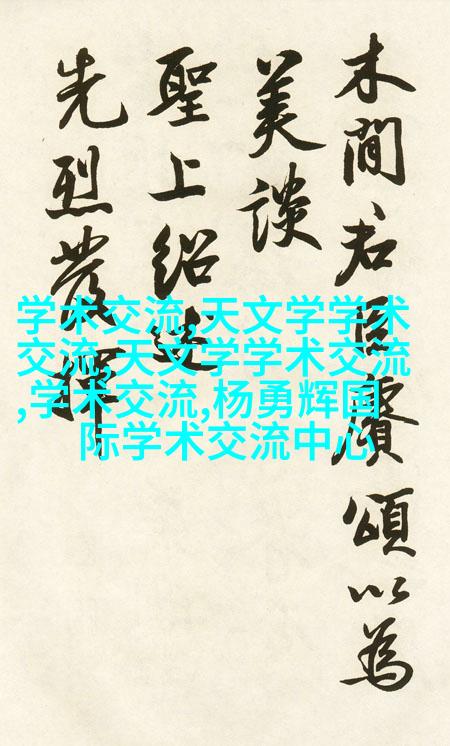 木間君臣賡頌以為
美談
聖上紹述
先烈發揮
学术交流,天文学学术
交流,天文学学术交流
,学术交流,杨勇辉国
际学术交流中心